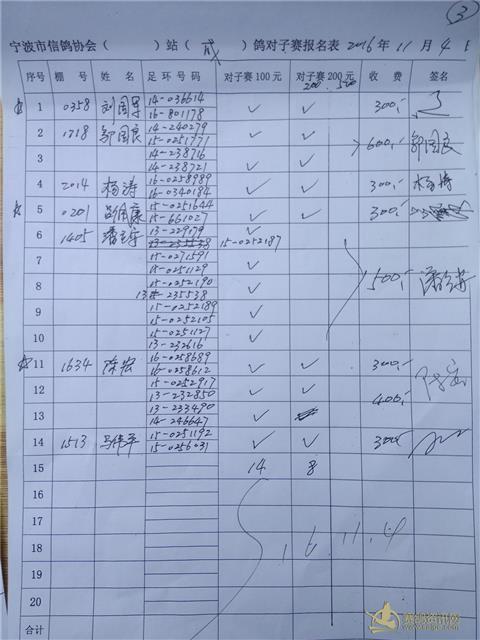 ③
宁波市信鸽协会（ ）站（成）鸽对子赛报名表 2016年11月4日
序号 棚号 姓名 足环号码 对子赛100元 对子赛200元 收费 签名
200.500
1 0358 刘国军 14-036614 ✓ ✓ 300,-
16-801178
2 1718 邬国良 14-240279 ✓ ✓ 600,- 邬国良
15-0251771
3 14-238716 ✓ ✓
14-238721
4 2014 杨涛 16-0258989 ✓ ✓ 300,- 杨涛
16-0340184
5 0201 15-0251644 ✓ ✓ 300,-
15-661027
6 1405 13-229179 ✓
13-235538 15-0252187
7 15-0271591 ✓
15-0251129
8 15-0252190 ✓ 500,-
13-235538
9 15-0252189 ✓
15-0252105
10 15-0251127 ✓
13-232616
11 1634 陈宏 16-0258689 ✓ ✓ 300,- 陈宏
16-0258612
12 15-0252917 ✓ ✓ 400,-
13-232850
13 13-233490 ✓
14-246647
14 1513 马伟平 15-0251192 ✓ ✓ 300,-
15-0256031
15 14 8
16
17
16.11.4
18
19
20
合计
赛鸽资讯网